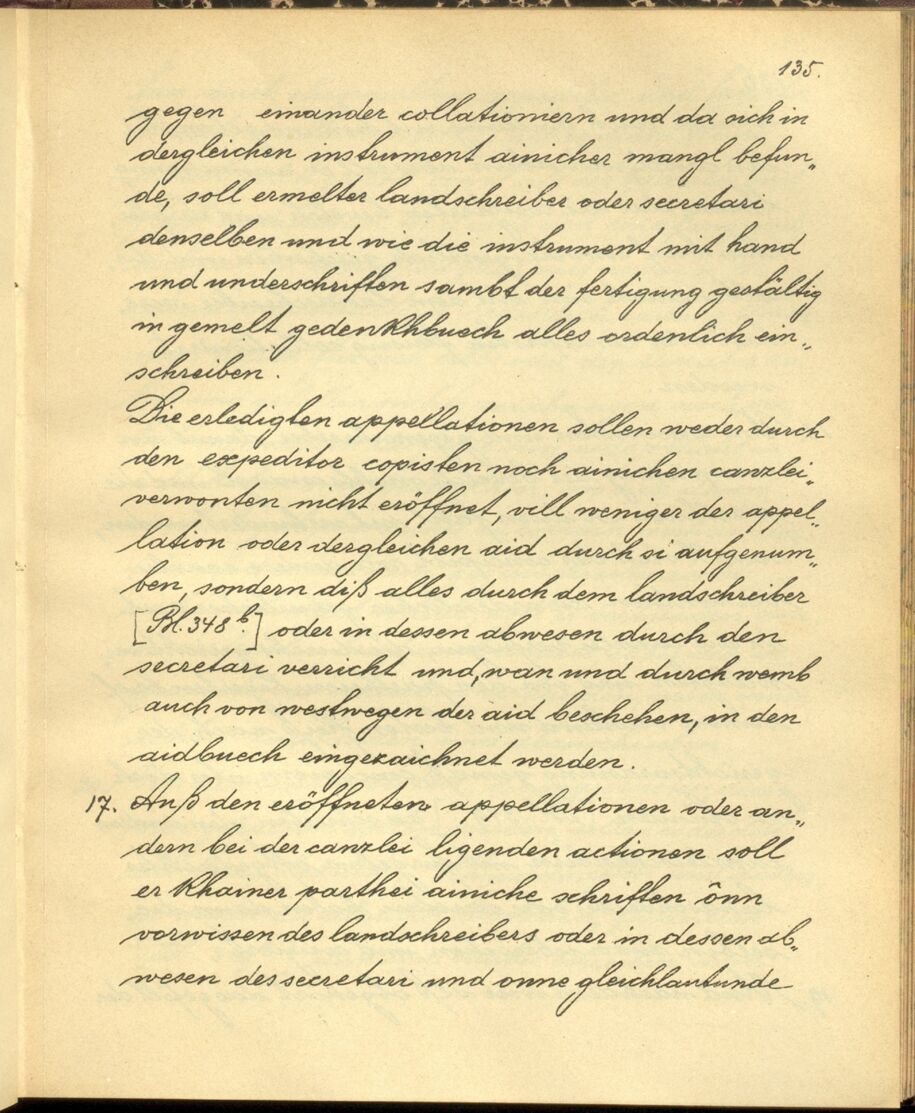 135.
gegen einander collationiern und da sich in
dergleichen instrument ainicher mangl befun„
de, soll ermelter landschreiber oder secretari
denselben und wie die instrument mit hand
und underschriften sambt der fertigung gestältig
in gemelt gedenkhbuech alles ordenlich ein„
schreiben.
Die erledigten appellationen sollen weder durch
den expeditor copisten noch ainichen canzlei„
verwonten nicht eröffnet, vill weniger der appel„
lation oder dergleichen aid durch si aufgenum„
ben, sondern diß alles durch dem landschreiber
[Bl. 348 b.] oder in dessen abwesen durch den
secretari verricht und, wan und durch wemb
auch von westwegen der aid beschehen, in den
aidbuech eingezaichnet werden.
17. Auß den eröffneten appellationen oder an„
dern bei der canzlei ligenden actionen soll
er khainer parthei ainiche schriften önn
vorwissen des landschreibers oder in dessen ab„
wesen des secretari und onne gleichlautunde